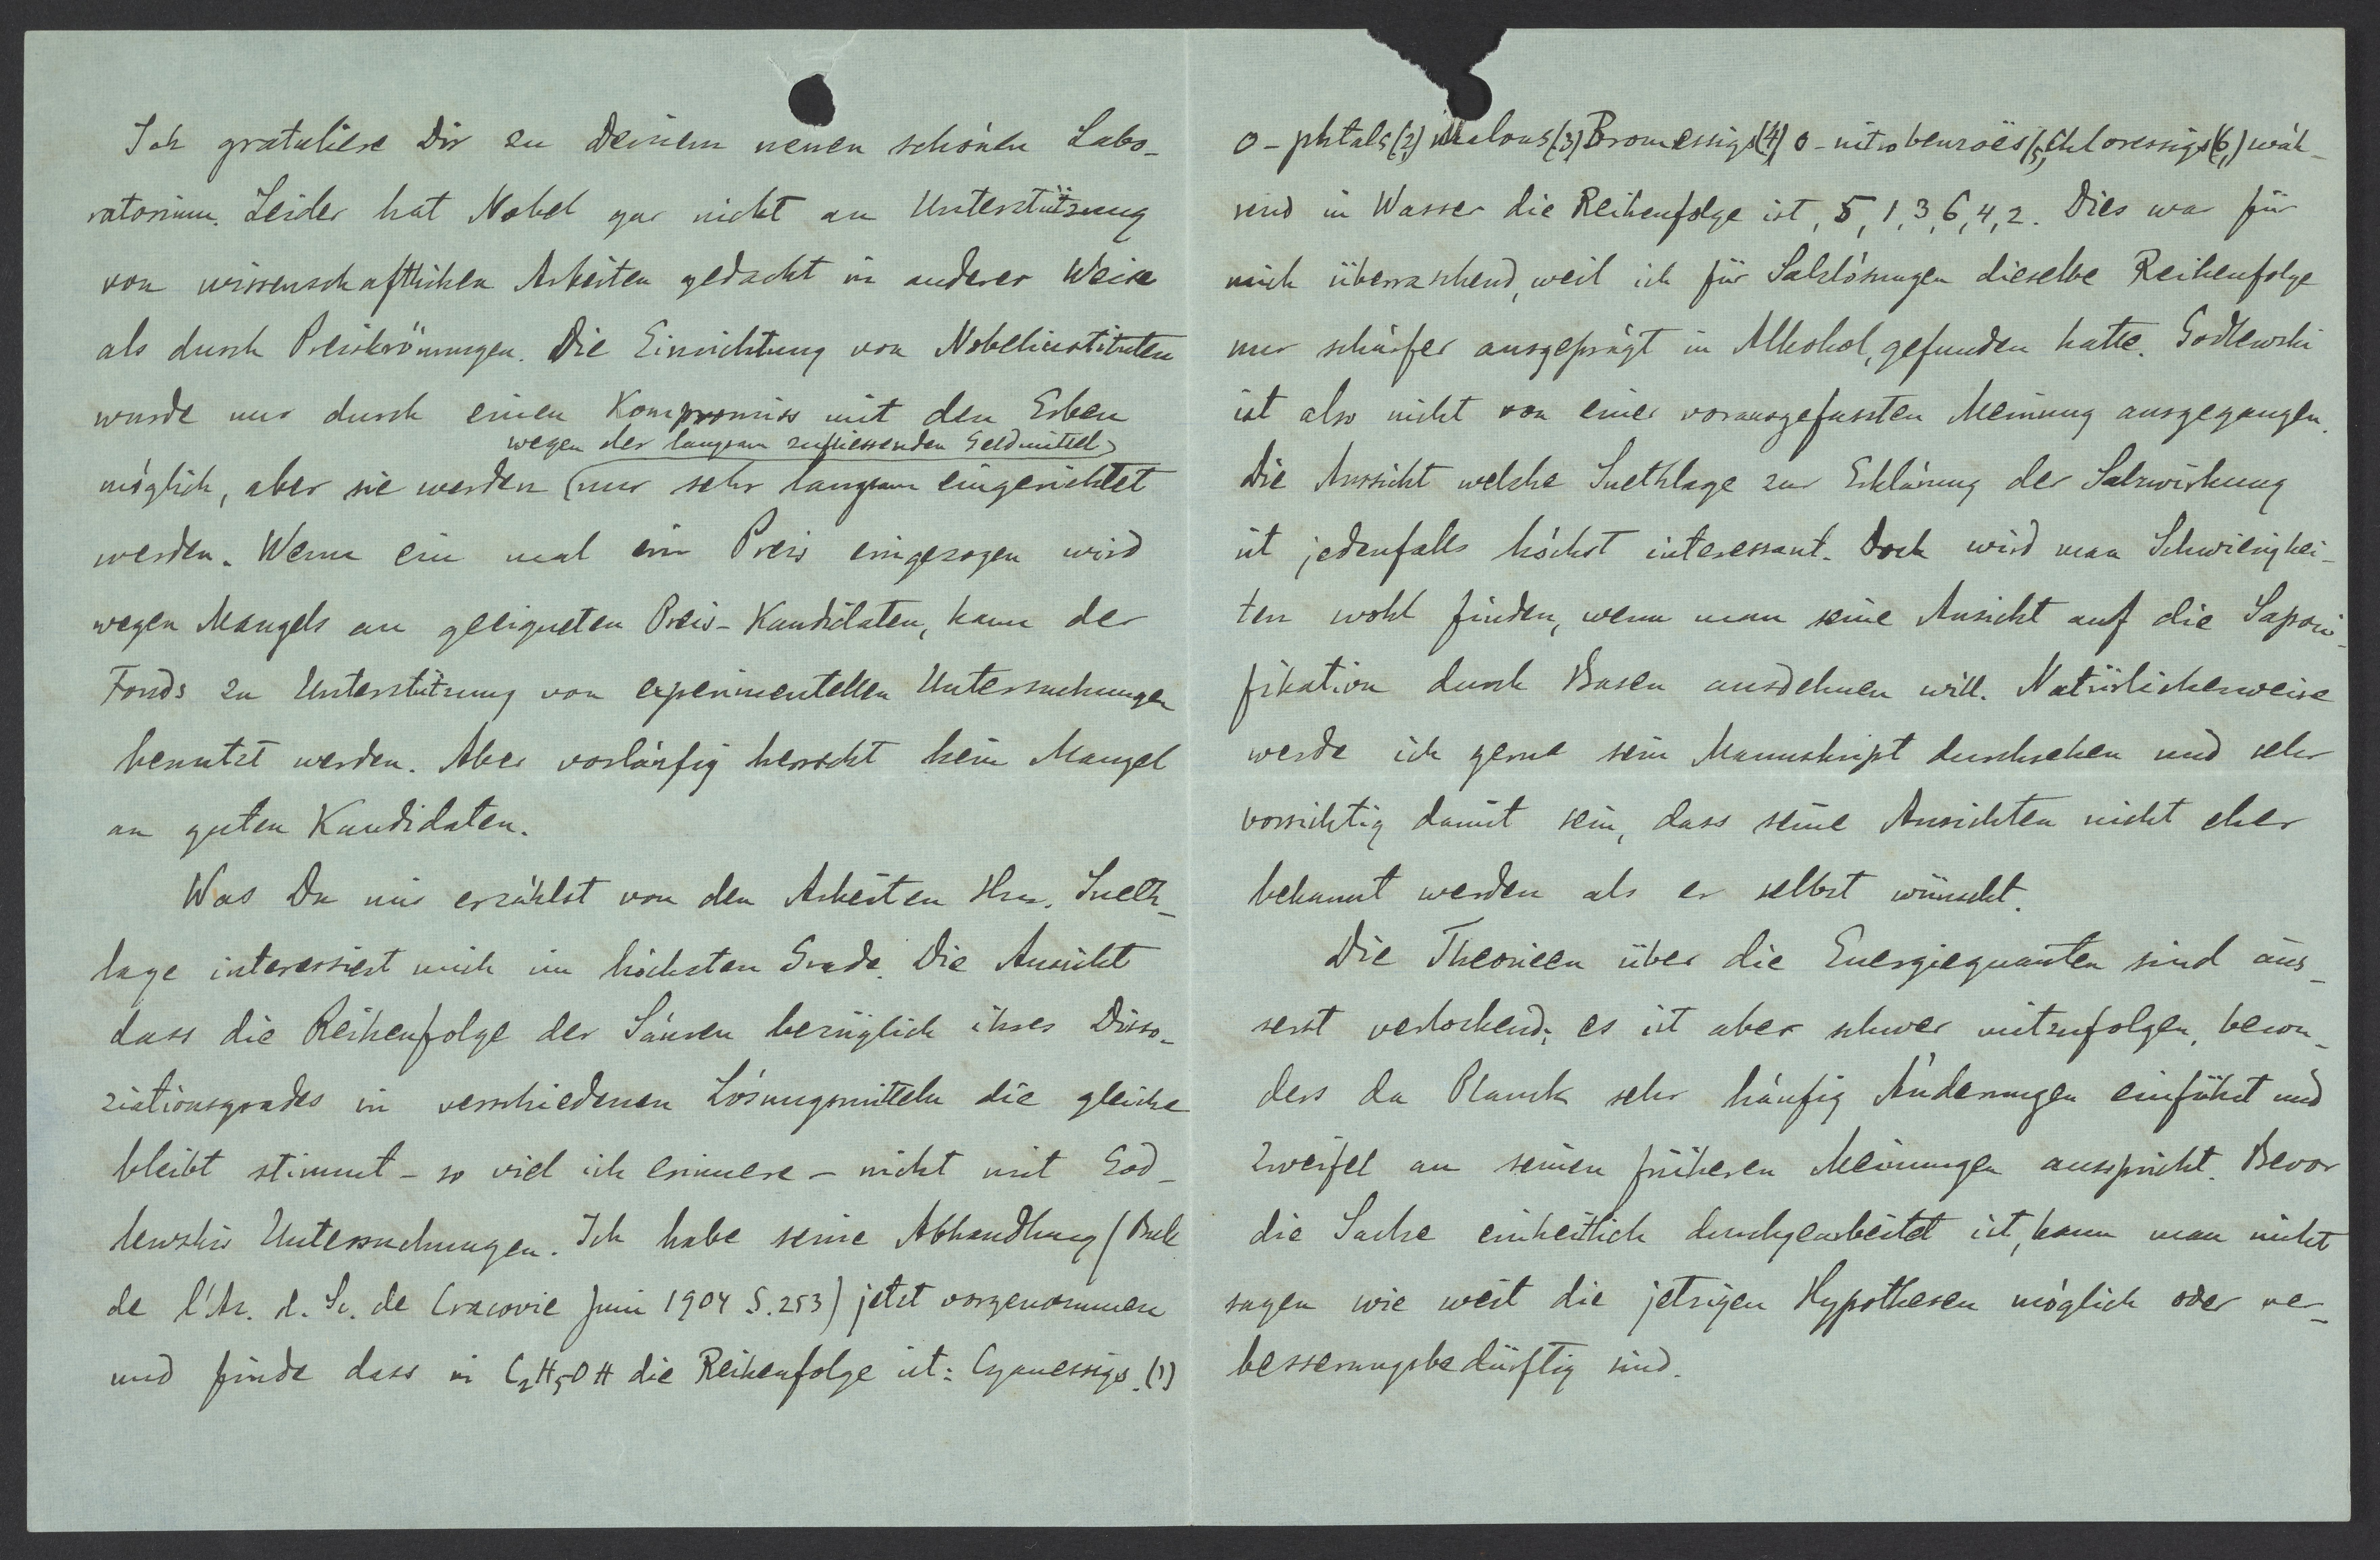 Ich gratuliere Dir zu Deinem neuen schönen Labo-
ratorium. Leider hat Nobel gar nicht an Unterstützung
von wissenschaftlichen Arbeiten gedacht in anderer Weise
als durch Preiskrönungen. Die Einrichtung von Nobelinstituten
wurde nur durch einen Kompromiss mit den Erben
wegen der langsam zufliessenden Geldmittel
möglich, aber sie werden (nur sehr langsam eingerichtet
werden. Wenn ein mal ein Preis eingezogen wird
wegen Mangels an geeigneten Preis-Kandidaten, kann der
Fonds zu Unterstützung von experimentellen Untersuchungen
benutzt werden. Aber vorläufig herrscht kein Mangel
an guten Kandidaten.
Was Du mir erzählst von den Arbeiten Hrn. Sneth-
lage interessiert mich im höchsten Grade. Die Ansicht
dass die Reihenfolge der Säuren bezüglich ihres Disso-
ziationsgrades in verschiedenen Lösungsmitteln die gleiche
bleibt stimmt - so viel ich erinnere - nicht mit God-
lewskis Untersuchungen. Ich habe seine Abhandlung (Bull
de l'Ac. d. Sc. de Cracovie Juni 1904 S. 253) jetzt vorgenommen
und finde dass in C2H5OH die Reihenfolge ist: Cyanessigs. (1)
o-phtals (2) Malons (3) Bromessigs (4) o-nitrobenzoës (5) Chloressigs (6,) wäh-
rend in Wasser die Reihenfolge ist, 5, 1, 3, 6, 4, 2. Dies war für
mich überraschend, weil ich für Salzlösungen dieselbe Reihenfolge
nur schärfer ausgeprägt in Alkohol, gefunden hatte. Godlewski
ist also nicht von einer vorausgefassten Meinung ausgegangen.
Die Ansicht welche Snethlage zur Erklärung der Salzwirkung
ist jedenfalls höchst interessant. Doch wird man Schwierigkei-
ten wohl finden, wenn man seine Ansicht auf die Saponi-
fikation durch Basen ausdehnen will. Natürlicherweise
werde ich gerne sein Manuskript durchsehen und sehr
vorsichtig damit sein, dass seine Ansichten nicht eher
bekannt werden als er selbst wünscht.
Die Theorieen über die Energiequanten sind äus-
serst verlockend; es ist aber schwer mitzufolgen, beson-
ders da Planck sehr häufig Änderungen einführt und
Zweifel an seinen früheren Meinungen ausspricht. Bevor
die Sache einheitlich durchgearbeitet ist, kann man nicht
sagen wie weit die jetzigen Hypothesen möglich oder ver-
besserungsbedürftig sind.